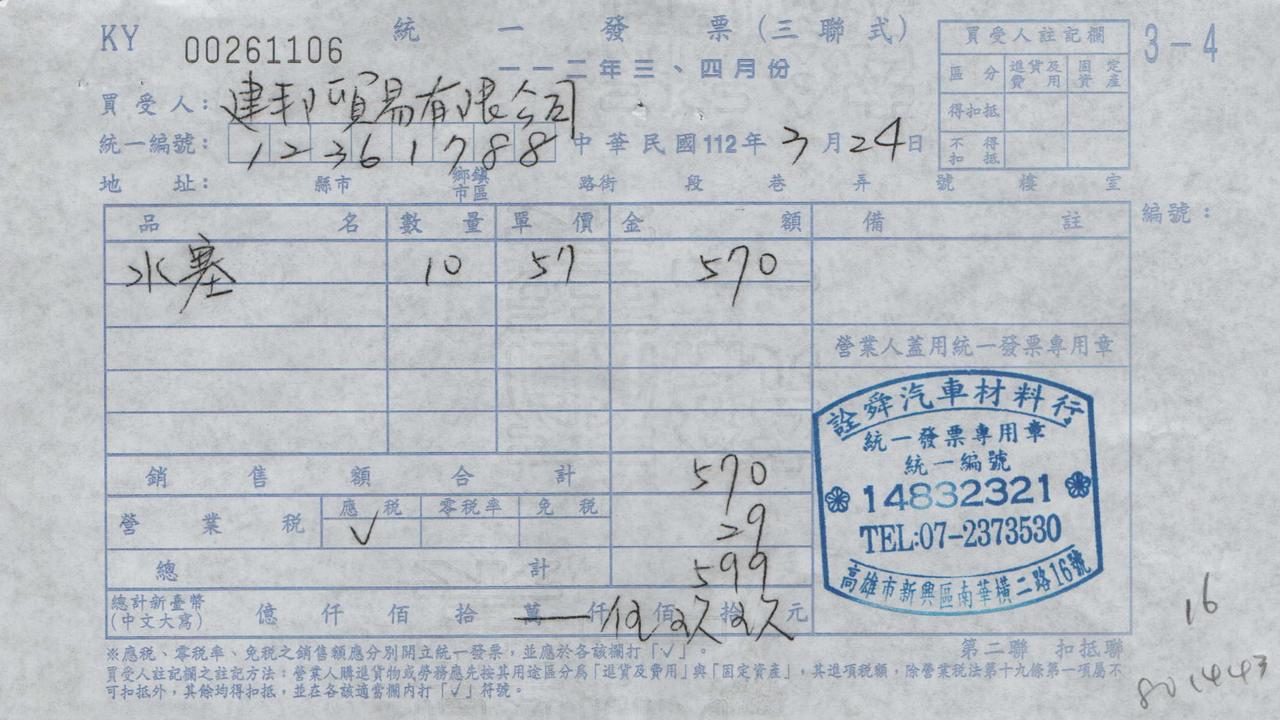 KY 00261106
統一發票(三聯式)
一一二年三、四月份
3-4
買受人註記欄
區分 進貨及費用 固定資產
得扣抵
不得扣抵
買受人：建邦貿易有限公司
統一編號：12361788 中華民國112年3月24日
地址： 縣市 鄉鎮市區 路街 段 巷 弄 號 樓 室
品名 數量 單價 金額 備註 編號：
水塞 10 57 570
營業人蓋用統一發票專用章
銷售額合計 570
營業稅 應稅 零稅率 免稅
√ 29
總計 599
總計新臺幣(中文大寫) 億 仟 佰 拾 萬 仟 伍佰 玖拾 玖元
詮舜汽車材料行
統一發票專用章
統一編號
14832321
TEL:07-2373530
高雄市新興區南華橫二路16號
第二聯 扣抵聯
※應稅、零稅率、免稅之銷售額應分別開立統一發票，並應於各該欄打「√」。
買受人註記欄之註記方法：營業人購進貨物或勞務應先按其用途區分為「進貨及費用」與「固定資產」，其進項稅額，除營業稅法第十九條第一項屬不
可扣抵外，其餘均得扣抵，並在各該適當欄內打「√」符號。
16
801443